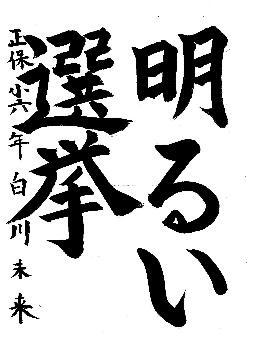 明るい
選挙
正保小六年白川未来